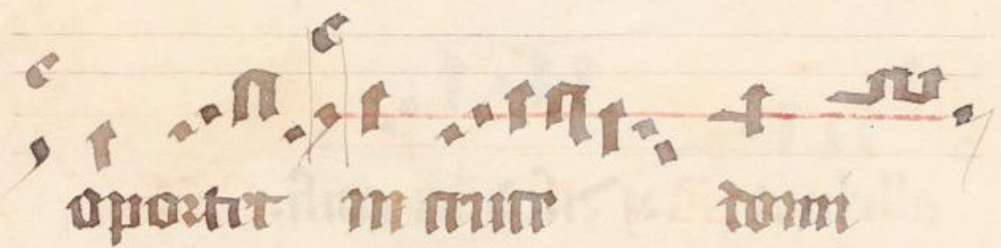 oportet in cruce domi